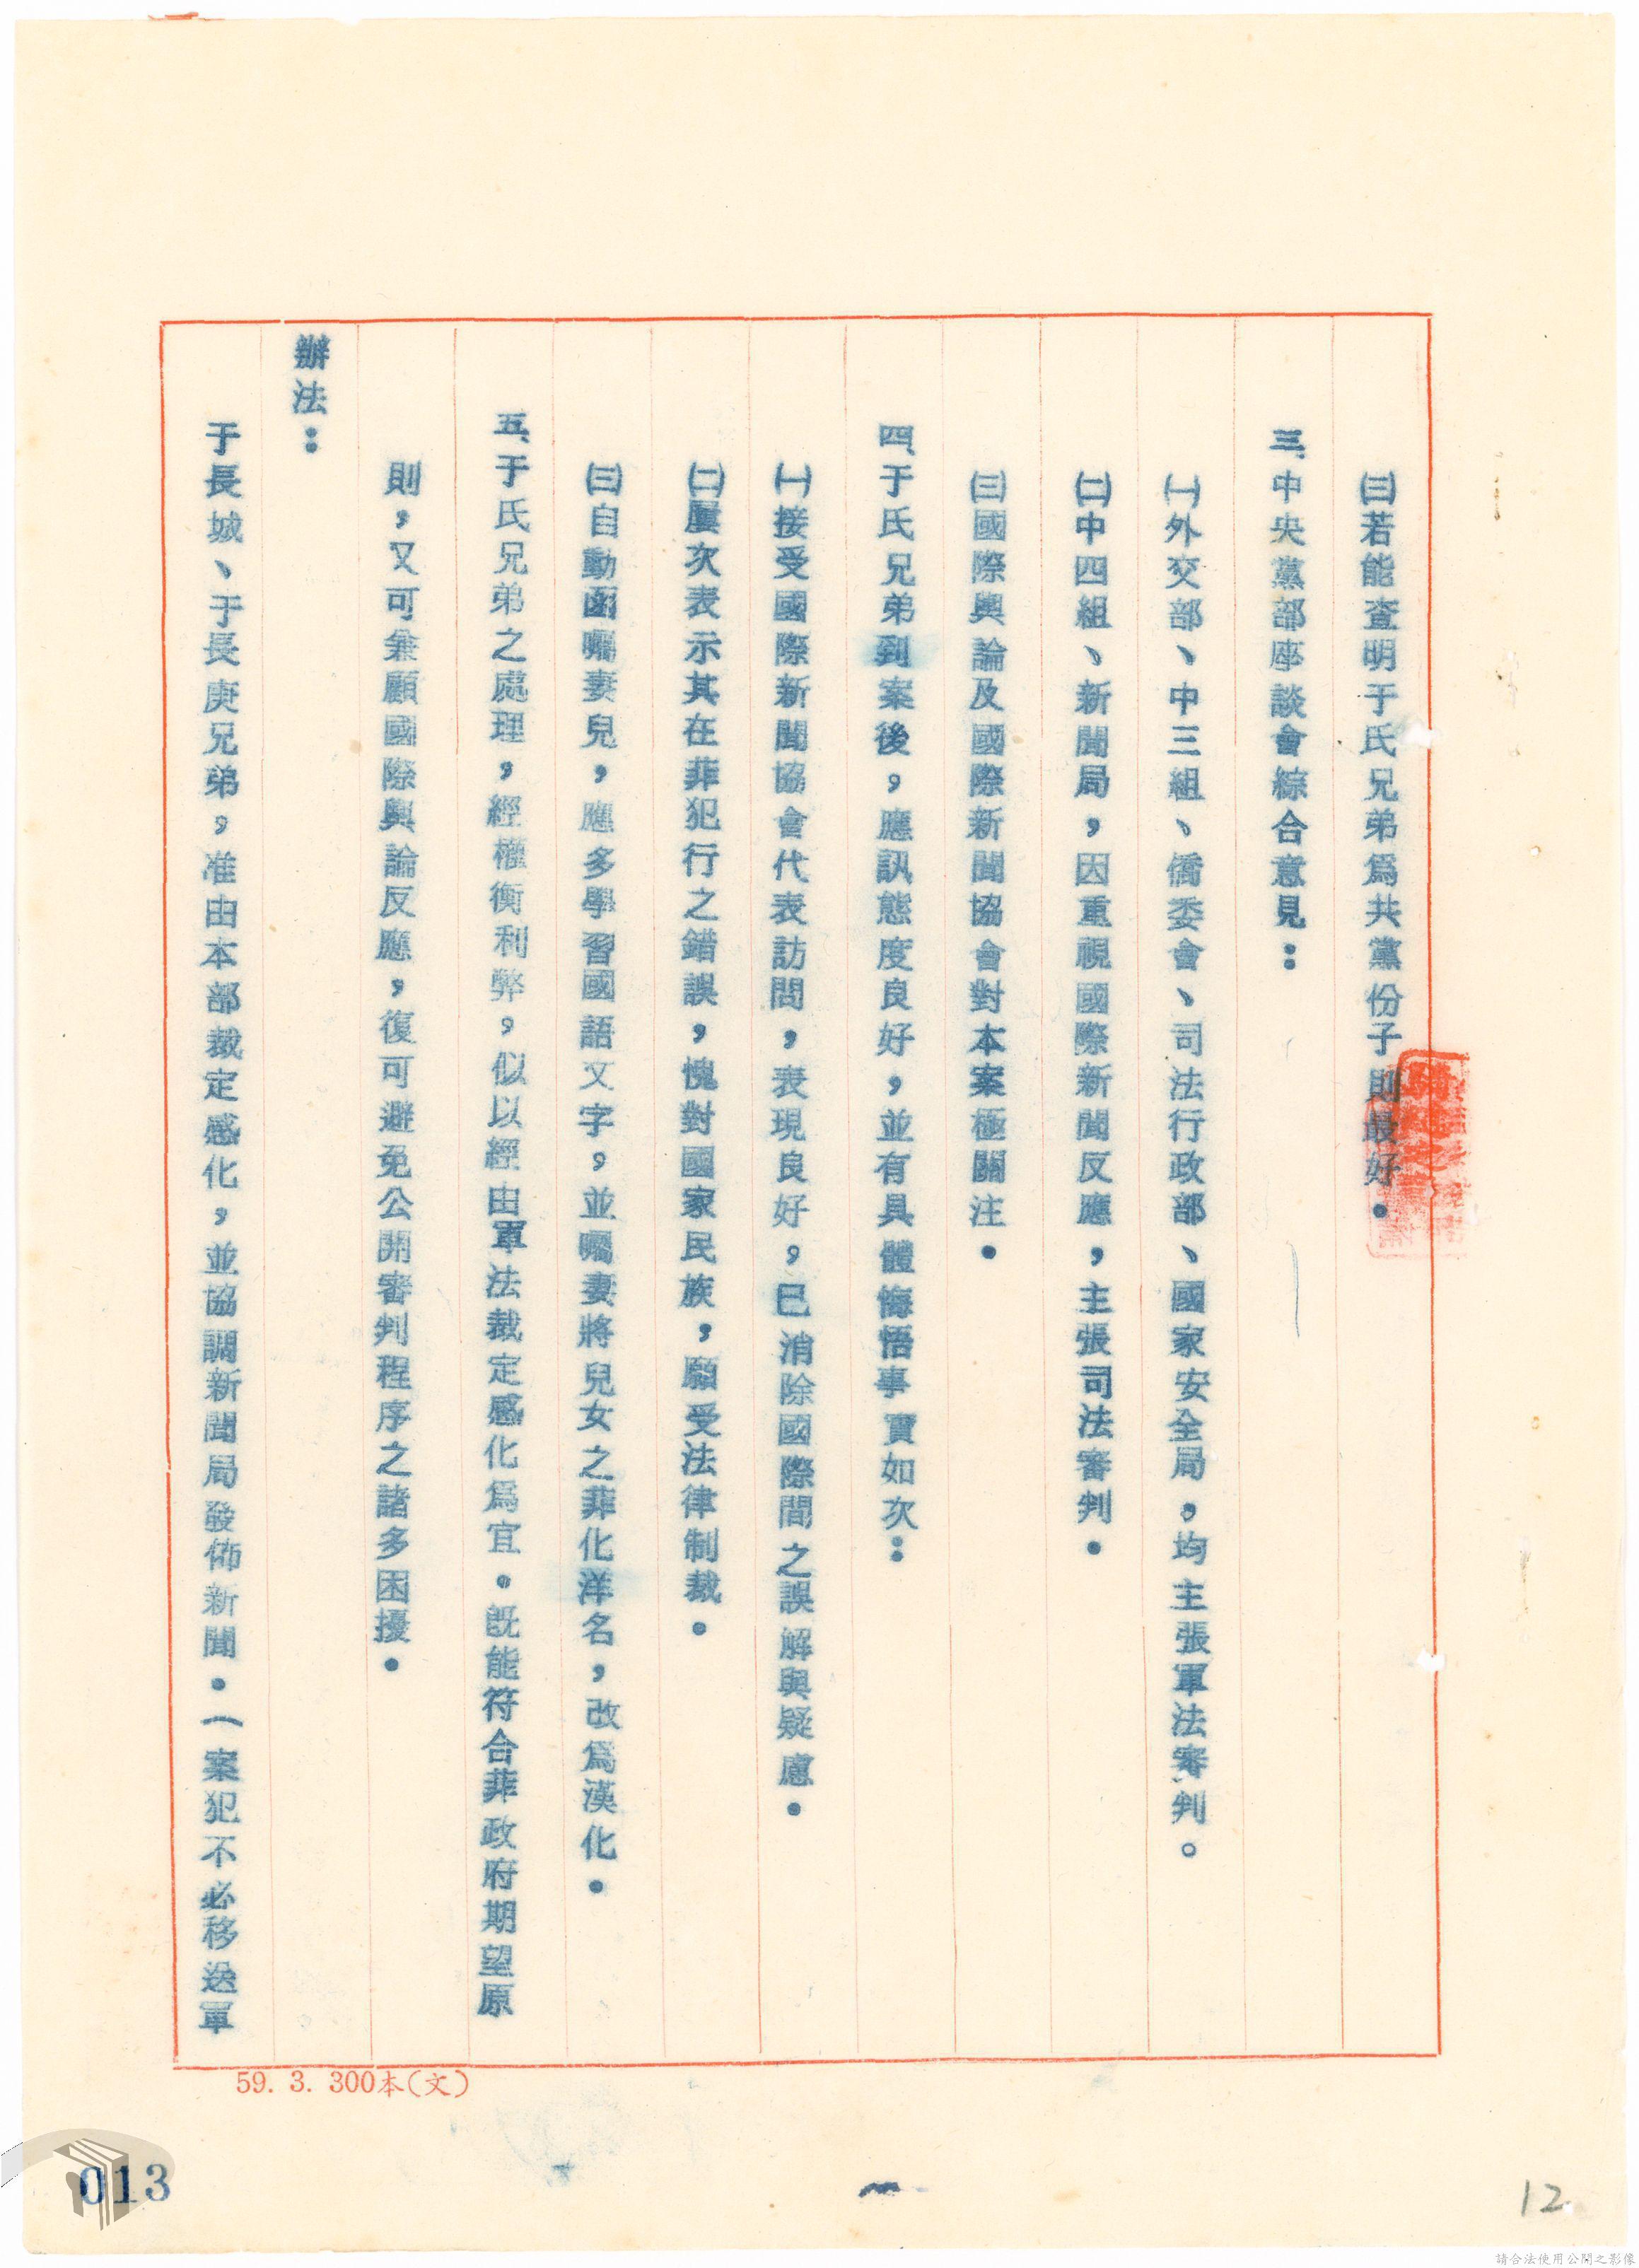 ㈢若能查明于氏兄弟爲共黨份子則最好。
三、中央黨部座談會綜合意見：
㈠外交部、中三組、僑委會、司法行政部、國家安全局，均主張軍法審判。
㈡中四組、新聞局，因重視國際新聞反應，主張司法審判。
㈢國際輿論及國際新聞協會對本案極關注。
四、于氏兄弟到案後，應訊態度良好，並有具體悔悟事實如次：
㈠接受國際新聞協會代表訪問，表現良好，已消除國際間之誤解與疑慮。
㈡屢次表示其在菲犯行之錯誤，愧對國家民族，願受法律制裁。
㈢自動函囑妻兒，應多學習國語文字，並囑妻將兒女之菲化洋名，改爲漢化。
五、于氏兄弟之處理，經權衡利弊，似以經由軍法裁定感化爲宜。既能符合菲政府期望原
則，又可兼顧國際輿論反應，復可避免公開審判程序之諸多困擾。
辦法：
于長城、于長庚兄弟，准由本部裁定感化，並協調新聞局發佈新聞。（案犯不必移送軍
59. 3. 300本(文)
013
12
請合法使用公開之影像